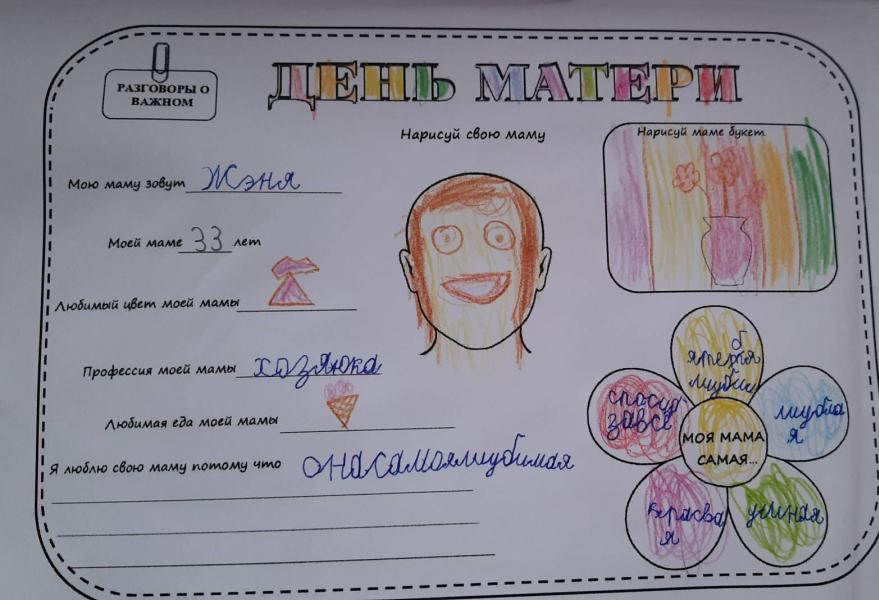 РАЗГОВОРЫ О
ВАЖНОМ
ДЕНЬ МАТЕРИ
Нарисуй свою маму
Нарисуй маме букет
Мою маму зовут Жэня
Моей маме 33 лет
Любимый цвет моей мамы
Профессия моей мамы хозяюка
Любимая еда моей мамы
Я люблю свою маму потому что онасамаялиубимая
спосуд
завсё
лиубла
я
МОЯ МАМА
САМАЯ...
красва
я
умная